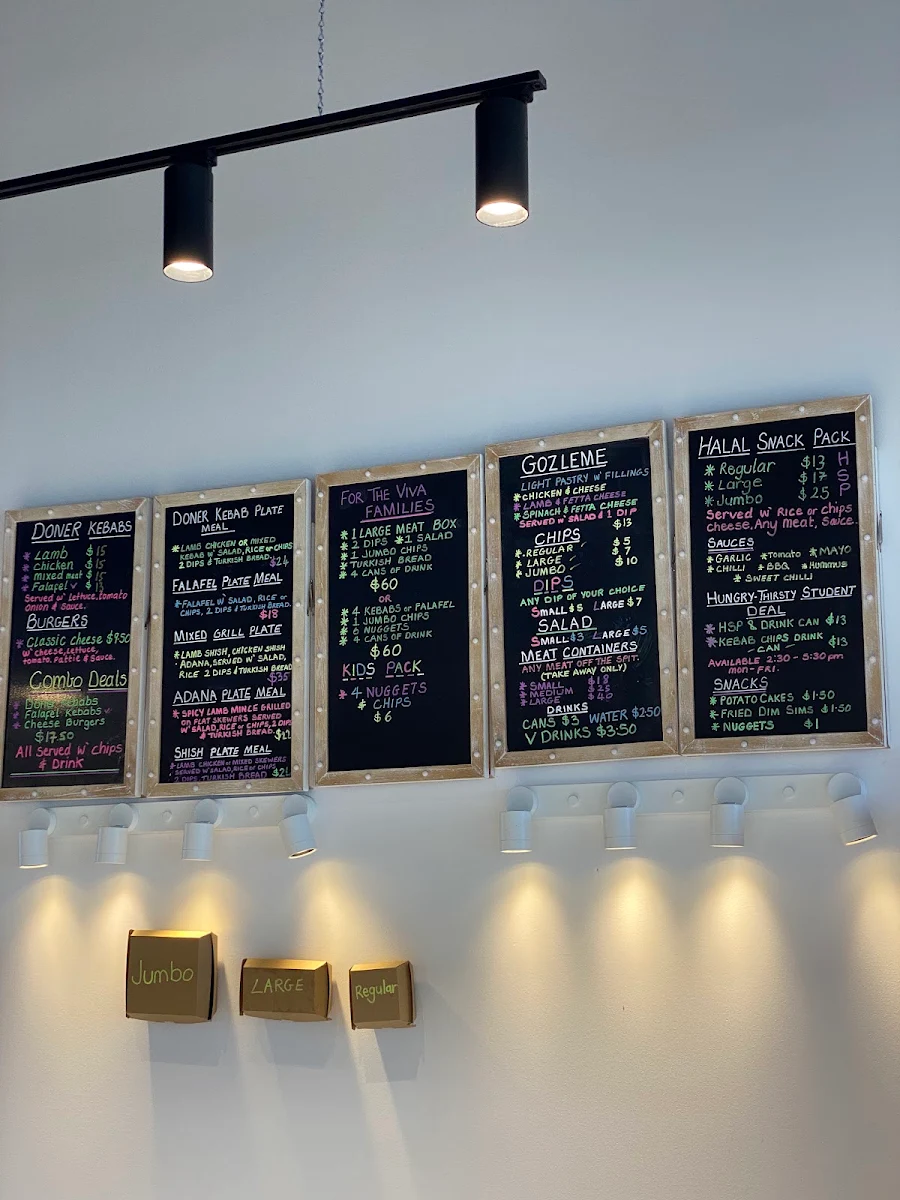 DONER KEBABS
* Lamb $15
* chicken $15
* mixed meat $15
* Falafel
Served w' lettuce, tomato
onion & sauce.
BURGERS
* Classic cheese $9.50
w' cheese, lettuce,
tomato. Pattie & Sauce.
Combo Deals
* Doner Kebabs
* Falafel Kebabs
* Cheese Burgers
$17.50
All served w' chips
& Drink
DONER KEBAB PLATE
MEAL
*LAMB CHICKEN OR MIXED
KEBAB W' SALAD, RICE OR CHIPS
2 DIPS & TURKISH BREAD. $24
FALAFEL PLATE MEAL
*FALAFEL W' SALAD, RICE OR
CHIPS, 2 DIPS & TURKISH BREAD.
$18
MIXED GRILL PLATE
*LAMB SHISH, CHICKEN SHISH
ADANA, SERVED W' SALAD,
RICE, 2 DIPS & TURKISH BREAD
$35
ADANA PLATE MEAL
* SPICY LAMB MINCE GRILLED
ON FLAT SKEWERS SERVED
W' SALAD, RICE OR CHIPS, 2 DIPS
& TURKISH BREAD.
SHISH PLATE MEAL
*LAMB CHICKEN OR MIXED SKEWERS
SERVED W' SALAD, RICE OR CHIPS,
2 DIPS, TURKISH BREAD
FOR THE VIVA
FAMILIES
* 1 LARGE MEAT BOX
* 2 DIPS * 1 SALAD
* 1 JUMBO CHIPS
* TURKISH BREAD
* 4 CANS OF DRINK
$60
OR
* 4 KEBABS OR FALAFEL
* 1 JUMBO CHIPS
* 6 NUGGETS
* 4 CANS OF DRINK
$60
KIDS PACK
* 4 NUGGETS
* CHIPS
$6
GOZLEME
LIGHT PASTRY W' FILLINGS
*CHICKEN & CHEESE
*LAMB & FETTA CHEESE
*SPINACH & FETTA CHEESE
SERVED W' SALAD & 1 DIP
$13
CHIPS
*REGULAR $5
*LARGE $7
*JUMBO $10
DIPS
ANY DIP OF YOUR CHOICE
SMALL $5 LARGE $7
SALAD
SMALL $3 LARGE $5
MEAT CONTAINERS
ANY MEAT OFF THE SPIT.
(TAKE AWAY ONLY)
* SMALL $18
* MEDIUM $25
* LARGE $40
DRINKS
CANS $3 WATER $2.50
V DRINKS $3.50
HALAL SNACK PACK
* Regular $13 H
* Large $17 S
* Jumbo $25 P
Served w' Rice or chips
cheese, Any meat, Sauce.
SAUCES
*GARLIC *Tomato *MAYO
*CHILLI *BBQ *HUMMUS
* SWEET CHILLI
HUNGRY-THIRSTY STUDENT
DEAL
* HSP & DRINK CAN $13
* KEBAB CHIPS DRINK
-CAN- $13
AVAILABLE 2:30 - 5:30pm
mon - FRI.
SNACKS
* POTATO CAKES $1.50
* FRIED DIM SIMS $1.50
* NUGGETS $1
Jumbo
LARGE
Regular